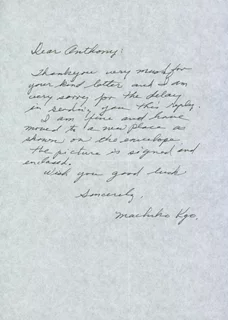 Dear Anthony:
Thank you very much for
your kind letter and I am
very sorry for the delay
in sending you this reply.
I am fine and have
moved to a new place as
shown on the envelope
the picture is signed and
enclosed.
Wish you good luck
Sincerely,
Machiko Kyo.